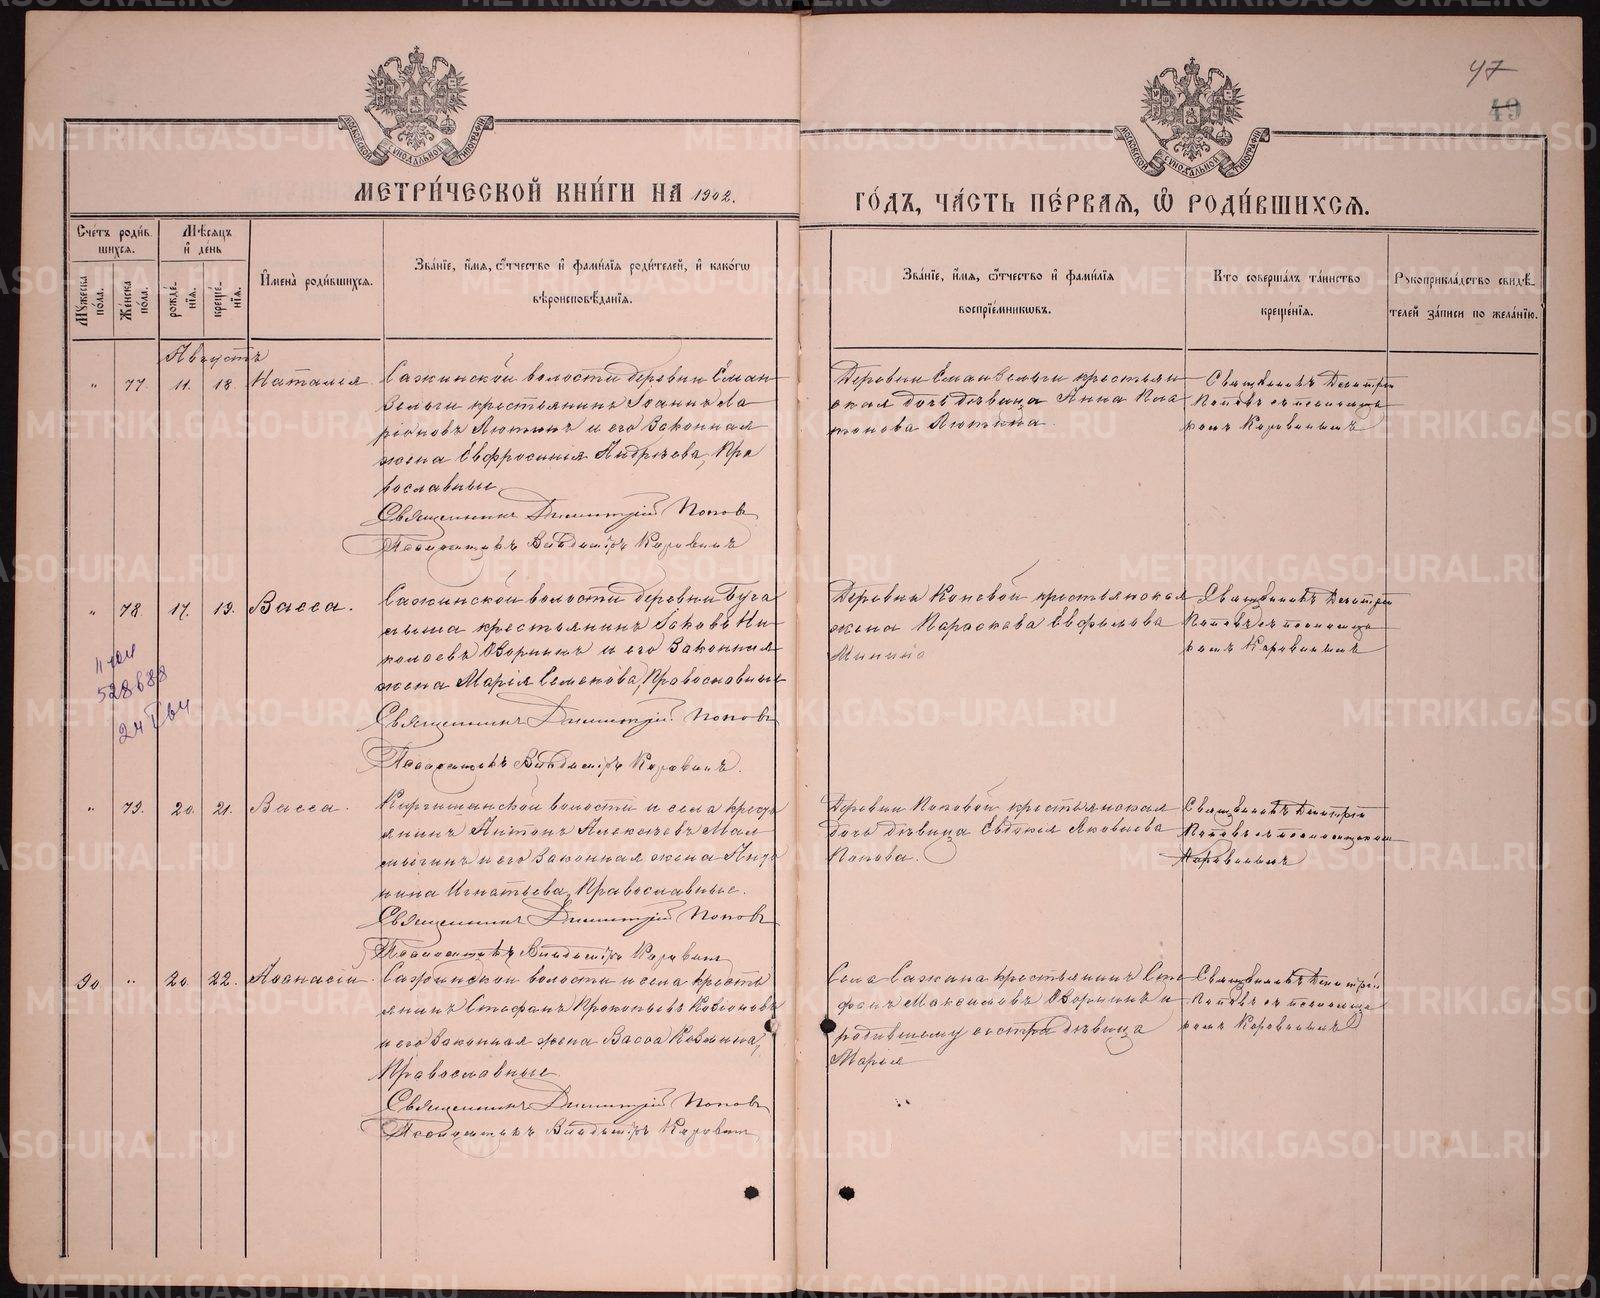 47
49
МОСКОВСКОЙ СѴНОДАЛЬНОЙ ТИПОГРАФІИ
МОСКОВСКОЙ СѴНОДАЛЬНОЙ ТИПОГРАФІИ
МЕТРИ́ЧЕСКОЙ КНИ́ГИ НА 1902.
ГО́ДЪ, ЧА́СТЬ ПЕ́РВАЯ, Ѽ РОДИ́ВШИХСЯ.
Сче́тъ роди́в-
шихся.
Мѣ́сяцъ
и҆ де́нь
Му́жеска
по́ла.
Же́нска
по́ла.
рожде́-
нїя.
креще́-
нїя.
И҆мена̀ роди́вшихся.
Зва́нїе, и҆́мя, ѻ҆́тчество и҆ фами́лїя роди́телей, и҆ како́гѡ
вѣроисповѣ́данїя.
Зва́нїе, и҆́мя, ѻ҆́тчество и҆ фами́лїя
воспрїе́мникѡвъ.
Кто̀ соверша́лъ та́инство
креще́нїя.
Рꙋкоприкла́дство свидѣ́-
телей за́писи по жела́нїю.
Августъ
" 77. 11. 18. Наталія
Сажинской волости деревни Еман
зельги крестьянинъ Іоаннъ Ла
ріоновъ Лютинъ и его законная
жена Евфросинія Андреева, Пра
вославные
Священникъ Димитрій Поповъ
Псаломщикъ Владиміръ Коровинъ
Деревни Еманзельги крестьян
ская дочь дѣвица Анна Пла
тонова Лютина.
Священникъ Димитрій
Поповъ съ псаломщи
комъ Коровинымъ
" 78. 17. 19. Васса.
Сажинской волости деревни Буга
лыша крестьянинъ Іаковъ Ни
колаевъ Озорнинъ и его законная
жена Марія Семенова, Православные
Священникъ Димитрій Поповъ
Псаломщикъ Владиміръ Коровинъ.
Деревни Коневой крестьянская
жена Параскева Евфимова
Минина
Священникъ Димитрій
Поповъ съ псаломщи
комъ Коровинымъ
528688
" 79. 20. 21. Васса.
Киргишанской волости и села кресть
янинъ Антонъ Алексѣевъ Мал
мыгинъ и его законная жена Анто
нина Игнатьева, Православные.
Священникъ Димитрій Поповъ
Псаломщикъ Владиміръ Коровинъ
Деревни Поповой крестьянская
дочь дѣвица Евдокія Яковлева
Попова.
Священникъ Димитрій
Поповъ съ псаломщикомъ
Коровинымъ
90 " 20. 22. Аѳанасій.
Сажинской волости и села кресть
янинъ Стефанъ Прокопьевъ
и его законная жена Васса Козмина,
Православные
Священникъ Димитрій Поповъ
Псаломщикъ Владиміръ Коровинъ
Села Сажина крестьянинъ Сте
фанъ Максимовъ Озорнинъ и
родившему сестра дѣвица
Марія
Священникъ Димитрій
Поповъ съ псаломщи
комъ Коровинымъ
METRIKI.GASO-URAL.RU